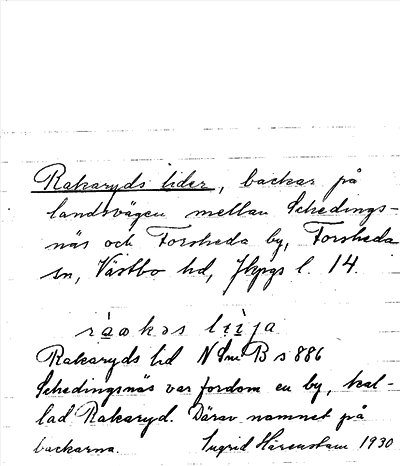 Rakaryds lider, backar på
landsvägen mellan Schedings-
näs och Forsheda by, Forsheda
sn, Västbo hd, Jkpgs l. 14.
Rakaryds lid N Sm B s 886
Schedingsnäs var fordom en by, kal-
lad Rakaryd. Därav namnet på
backarna. Ingrid Härenstam 1930